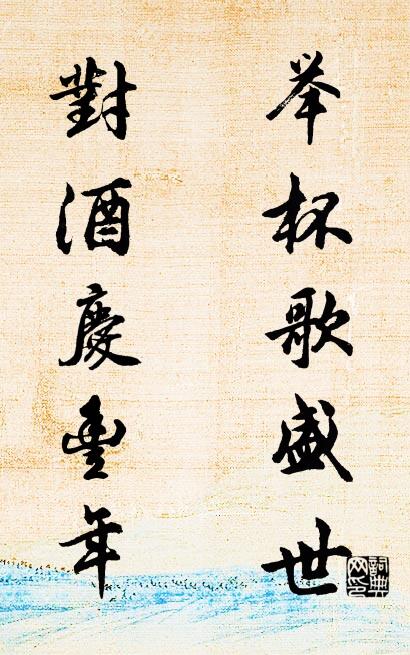 举杯歌盛世
對酒慶豊年
詞典网印